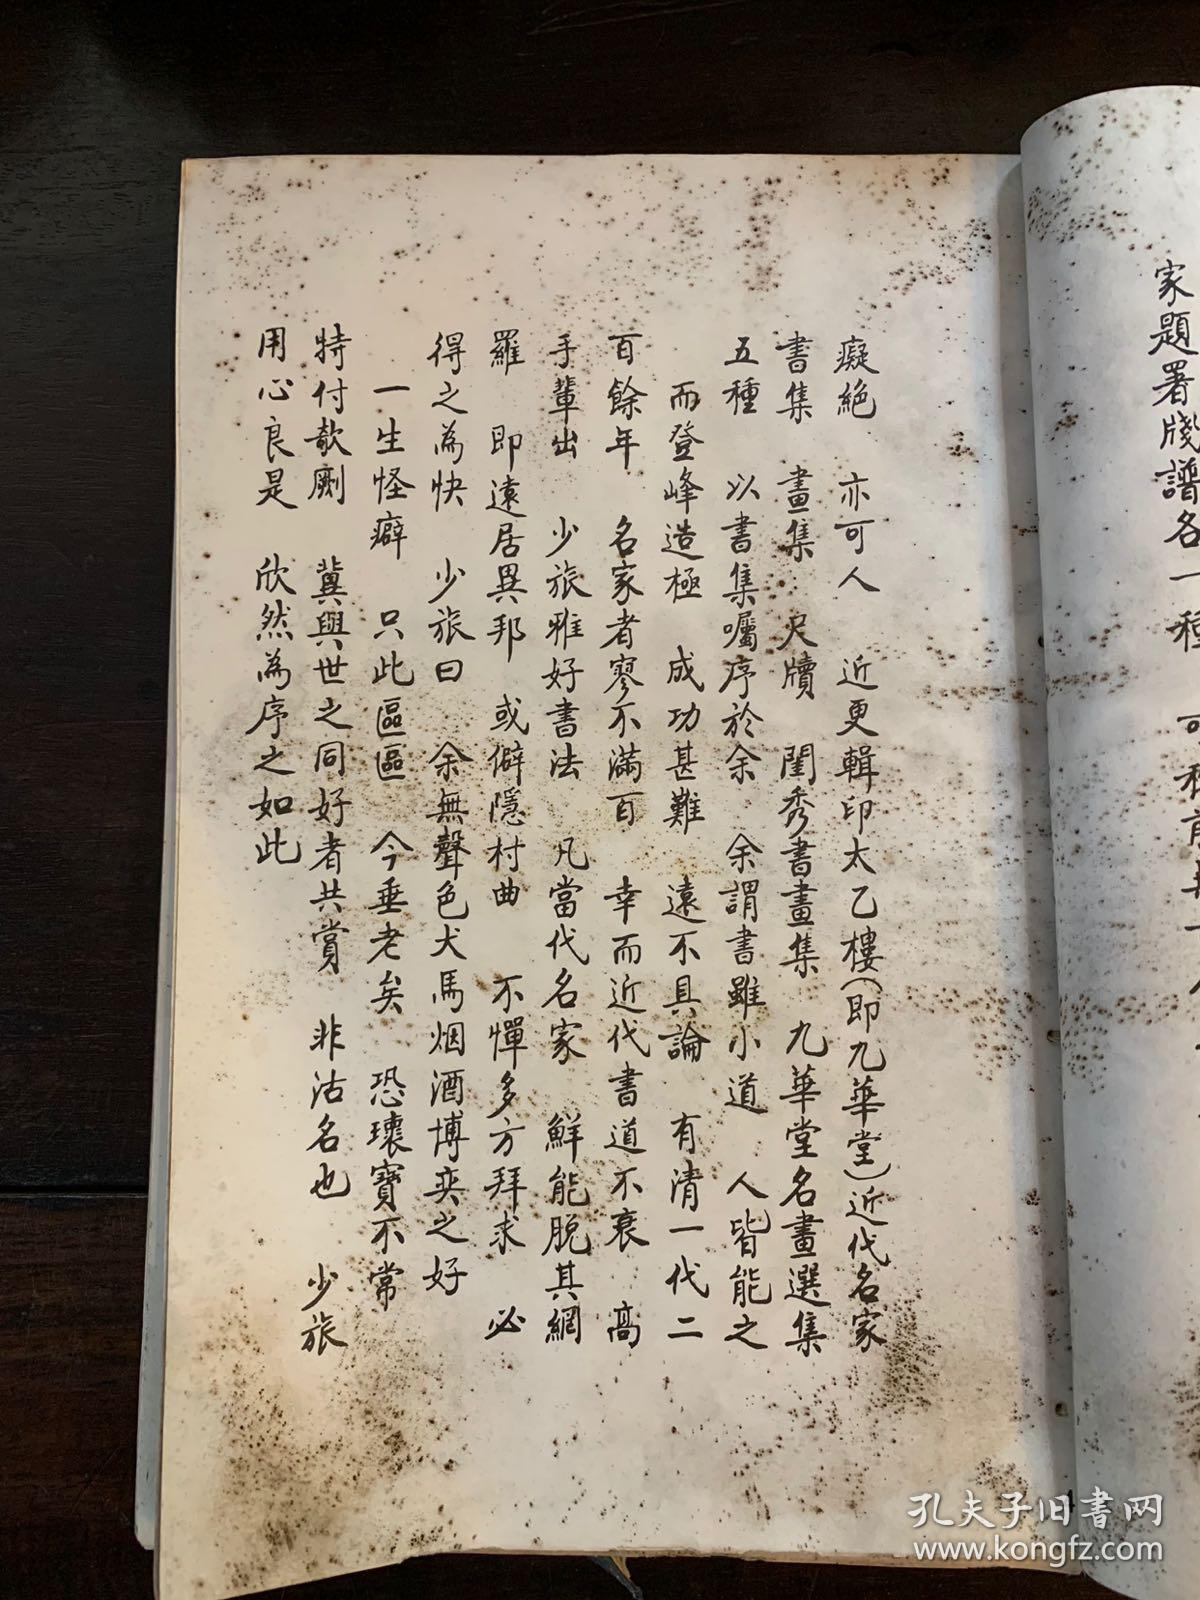 家題署牋譜各一種
癡絕 亦可人 近更輯印太乙樓(即九華堂)近代名家
書集 畫集 尺牘 閨秀書畫集 九華堂名畫選集
五種 以書集囑序於余 余謂書雖小道 人皆能之
而登峰造極 成功甚難 遠不具論 有清一代二
百餘年 名家者寥不滿百 幸而近代書道不衰 高
手輩出 少旅雅好書法 凡當代名家 鮮能脫其網
羅 即遠居異邦 或僻隱村曲 不憚多方拜求 必
得之為快 少旅曰 余無聲色犬馬烟酒博奕之好
一生怪癖 只此區區 今垂老矣 恐瓌寶不常
特付欹劂 冀與世之同好者共賞 非沽名也 少旅
用心良是 欣然為序之如此
孔夫子旧書网
www.kongfz.com